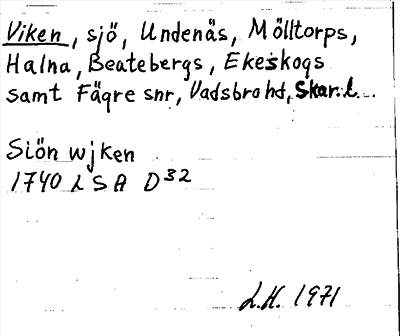 Viken, sjö, Undenäs, Mölltorps,
Halna, Beatebergs, Ekeskogs
samt Fägre snr, Vadsbro hd, Skar. l.
Siön wjken
1740 LSA D32
L.H. 1971